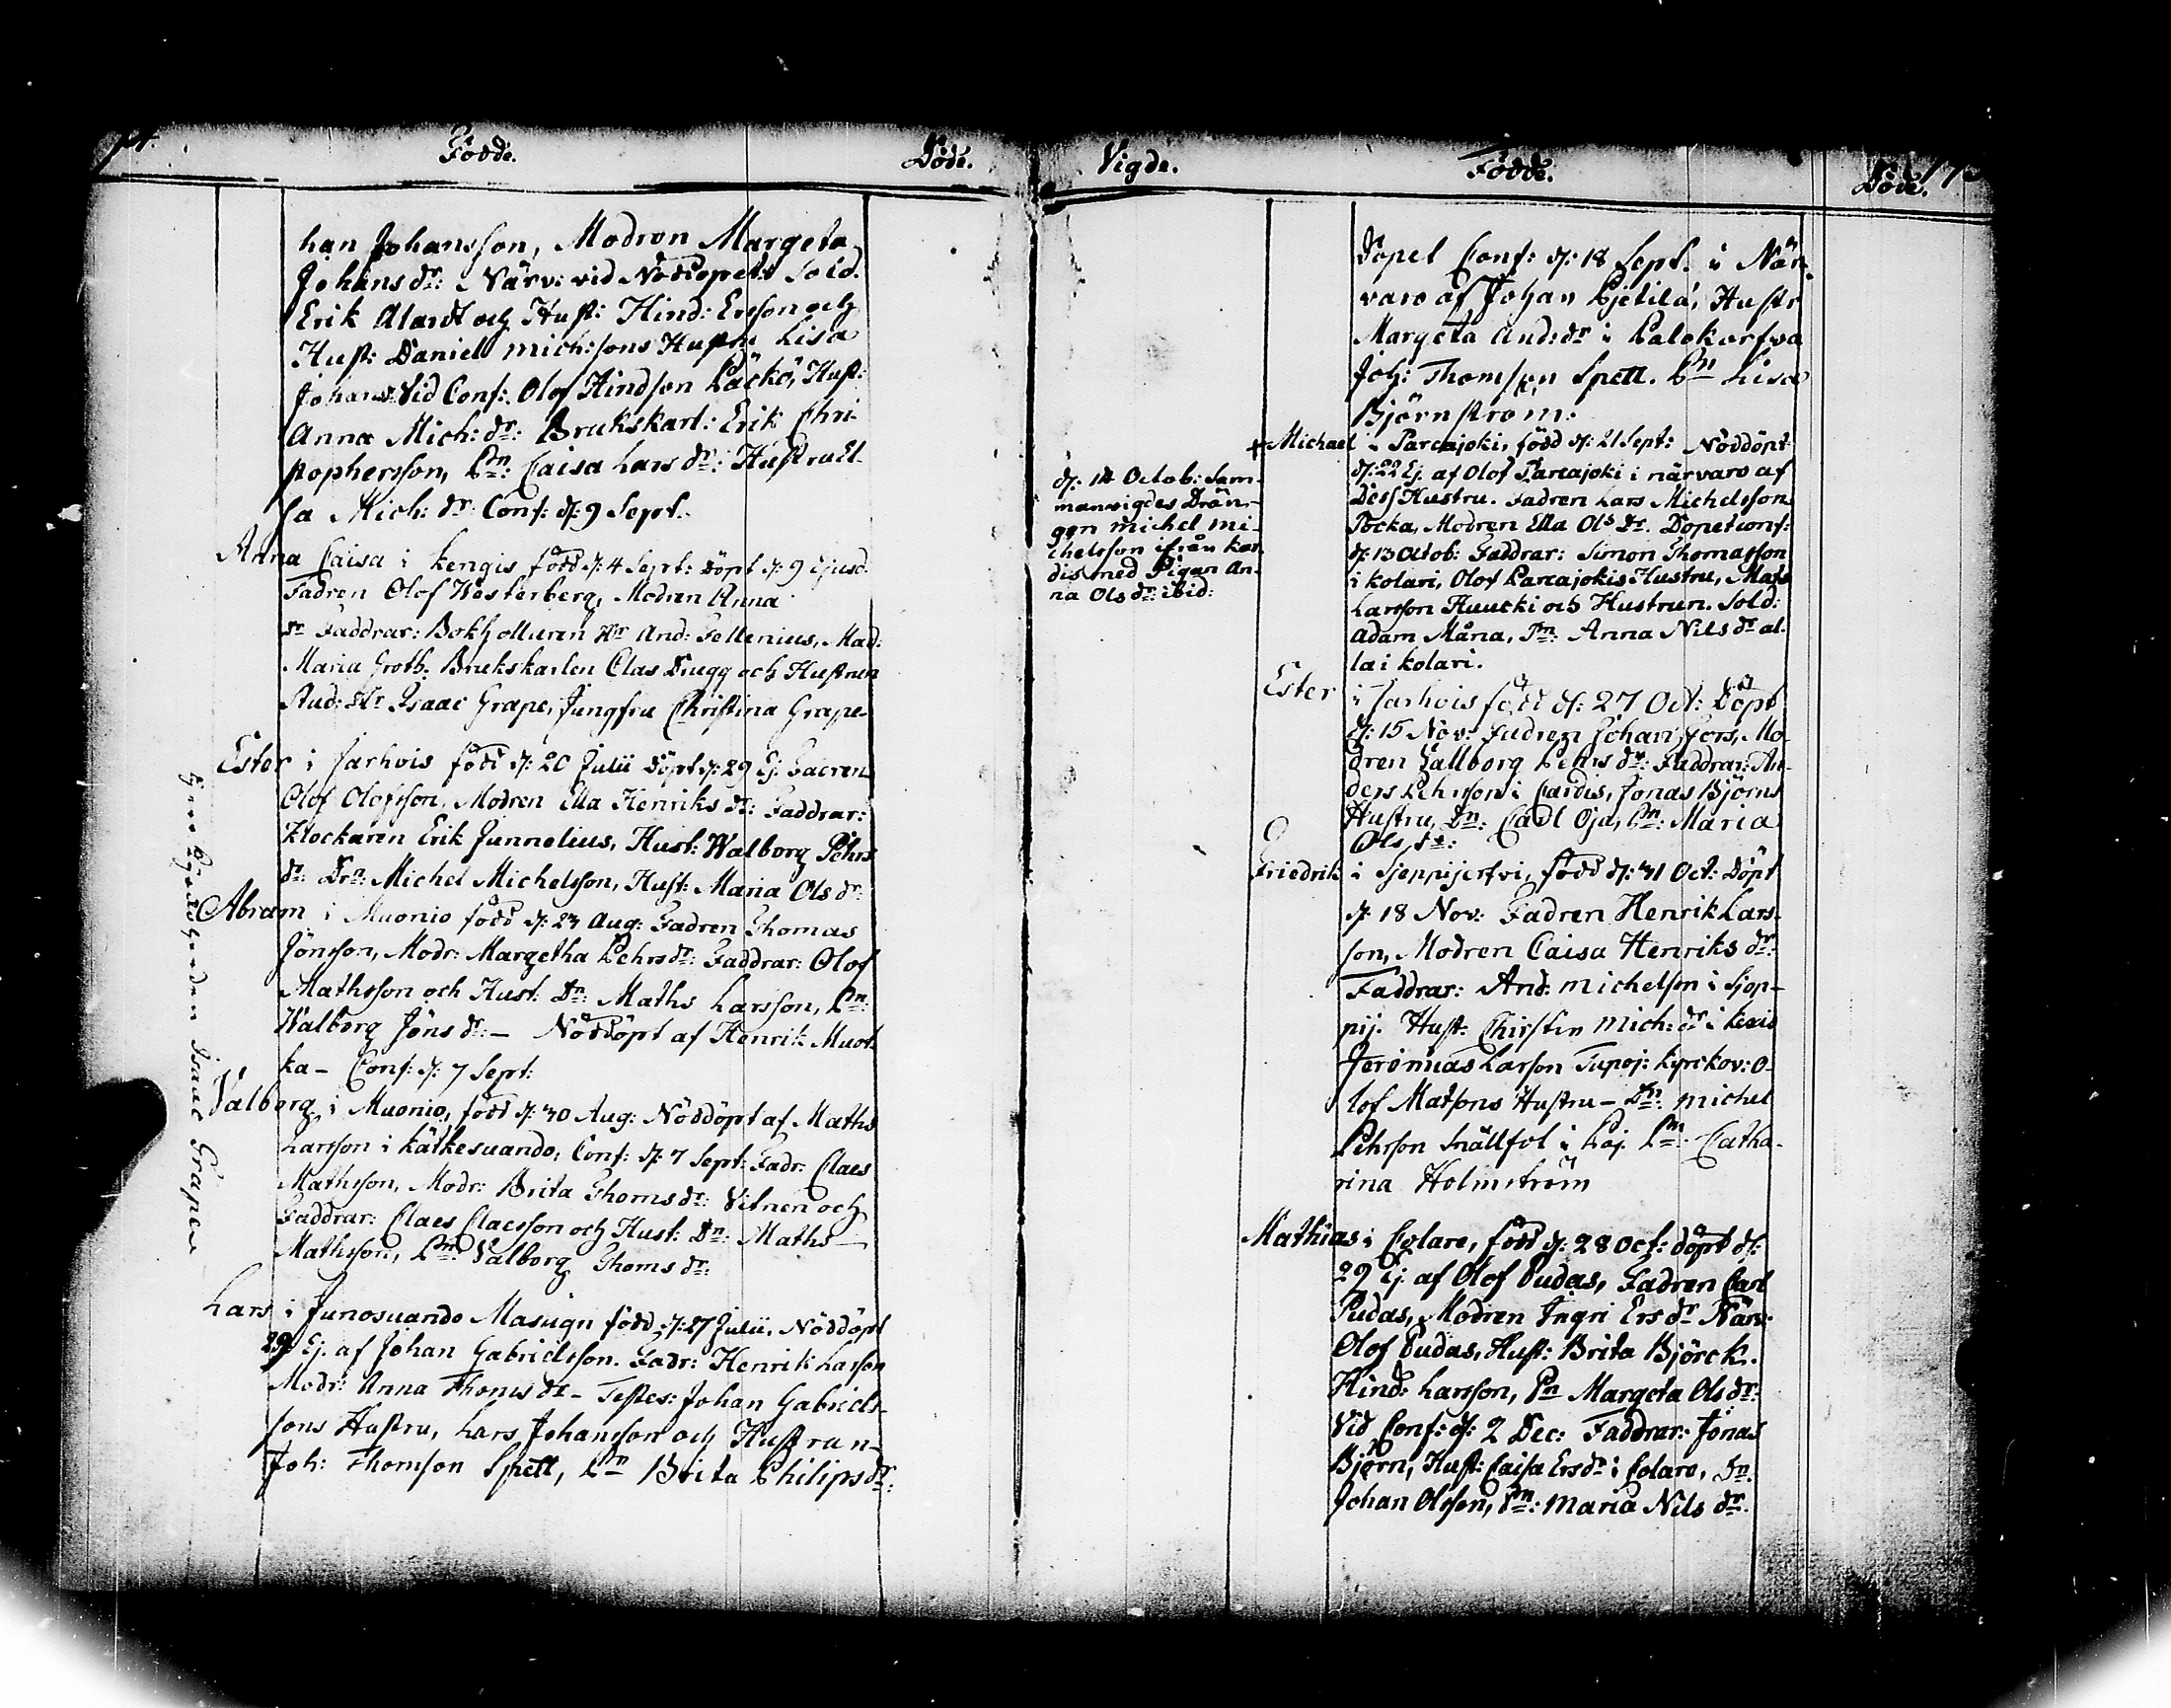 Födde.
Döde.
han Johansson, Modren Margeta
Johans dr: Närv: vid Nöddopet: Sold.
Erik Alardt och Hust: Hind: Ersson och
Hust: Daniel Mich:sons Hustru Lisa
Johans: Vid Conf: Olof Hindson Läckö, Hust:
Anna Mich: dr: Brukskarl: Erik Chri-
stophersson, Pn: Caisa Lars dr: Hustru El-
sa Mich: dr: Conf: d: 9 Sept:
Anna Caisa i Kengis född d: 4 Sept: Döpt d: 9 Ejusd.
Fadren Olof Westerberg, Modren Anna
dr Faddrar: Bokhollaren Hr And: Fellenius, Mad:
Maria Groth: Brukskarlen Clas Drugg och Hustrun
Stud: Hr Isaac Grape, Jungfru Christina Grape
Ester i Jarhois född d: 20 Julii Döpt d: 29 Ej. Fadren
Olof Olofsson, Modren Ella Henriks dr: Faddrar:
Klockaren Erik Junnelius, Hust: Walborg Pehrs
dr: Drn: Michel Michelsson, Hust: Maria Ols dr:
Abram i Muonio född d: 23 Aug: Fadren Thomas
Jönsson, Modr: Margetha Pehrs dr: Faddrar: Olof
Mathsson och Hust: Dn: Maths Larsson, Pn:
Walborg Jöns dr: – Nöddöpt af Henrik Muot-
ka – Conf: d: 7 Sept:
Valborg i Muonio, född d: 30 Aug: Nöddöpt af Maths
Larsson i kätkesuando, Conf: d: 7 Sept: Fadr: Claes
Mathsson, Modr: Brita Thoms dr: Vitnen och
Faddrar: Claes Claesson och Hust: Dn: Maths
Mathsson, Pn: Valborg Thoms dr:
Lars i Junosuando Masugn född d: 27 Julii, Nöddöpt
29 Ej. af Johan Gabrielsson. Fadr: Henrik Larsson
Modr: Anna Thoms dr – Testes: Johan Gabriels-
sons Hustru, Lars Johansson och Hustrun
Joh: Thomson Spett, Pn Brita Philips dr:
Isaac Grapen
Vigde.
Födde.
Döde.
d: 14 Octob: Sam-
manvigdes Drän-
gen Michel Mi-
chelsson ifrån Kar-
dis med Pigan An-
na Ols dr: ibid:
Döpel Conf: d: 18 Sept. i När-
varo af Johan Kjetilä, Hustr
Margeta And: dr i Palokorfwa
Joh: Thomson Spett. Pn Lisa
Björnström:
+ Michael i Parcajoki, född d: 21 Sept: Nöddöpt
d: 22 Ej. af Olof Parcajoki i närvaro af
Dess Hustru. Fadren Lars Michelsson
Pocka, Modren Ella Ols dr. Dopet conf:
d: 13 Octob: Faddrar: Simon Thomasson
i kolari, Olof Parcajokis Hustru, Mats
Larsson Huucki och Hustrun. Sold:
Adam Måna, Pn: Anna Nils dr al-
la i kolari.
Ester i Jarhois född d: 27 Oct: Döpt
d: 15 Nov: Fadren Johan Jers, Mo-
dren Vallborg Pehrs dr: Faddrar: An-
ders Pehrson i Cardis, Jonas Björns
Hustru, Dn: Carl Oja, Pn: Maria
Ols dr:
Friedrik i Sjeppijerfvi, född d: 31 Oct: Döpt
d: 18 Nov: Fadren Henrik Lars-
son, Modren Caisa Henriks dr:
Faddrar: And: Michelson i Sjop-
pij. Hust: Chirstin Mich: dr i kexis
Jeremias Larson Tupoj: Kyrkov: O-
lof Matsons Hustru – Dn: Michel
Pehrson Snällfot i Paj. Pn: Catha-
rina Holmström
Mathias i Colare, född d: 28 Oct: döpt d:
29 Ej. af Olof Pudas, Fadren Carl
Pudas, Modren Ingri Ers dr När:
Olof Pudas, Hust: Brita Björck.
Hind: Larsson, Pn Margeta Ols dr:
Vid Conf: d: 2 Dec: Faddrar: Jonas
Björn, Hust: Caisa Ers dr i Colare, Dn.
Johan Olsson, Pn: Maria Nils dr.